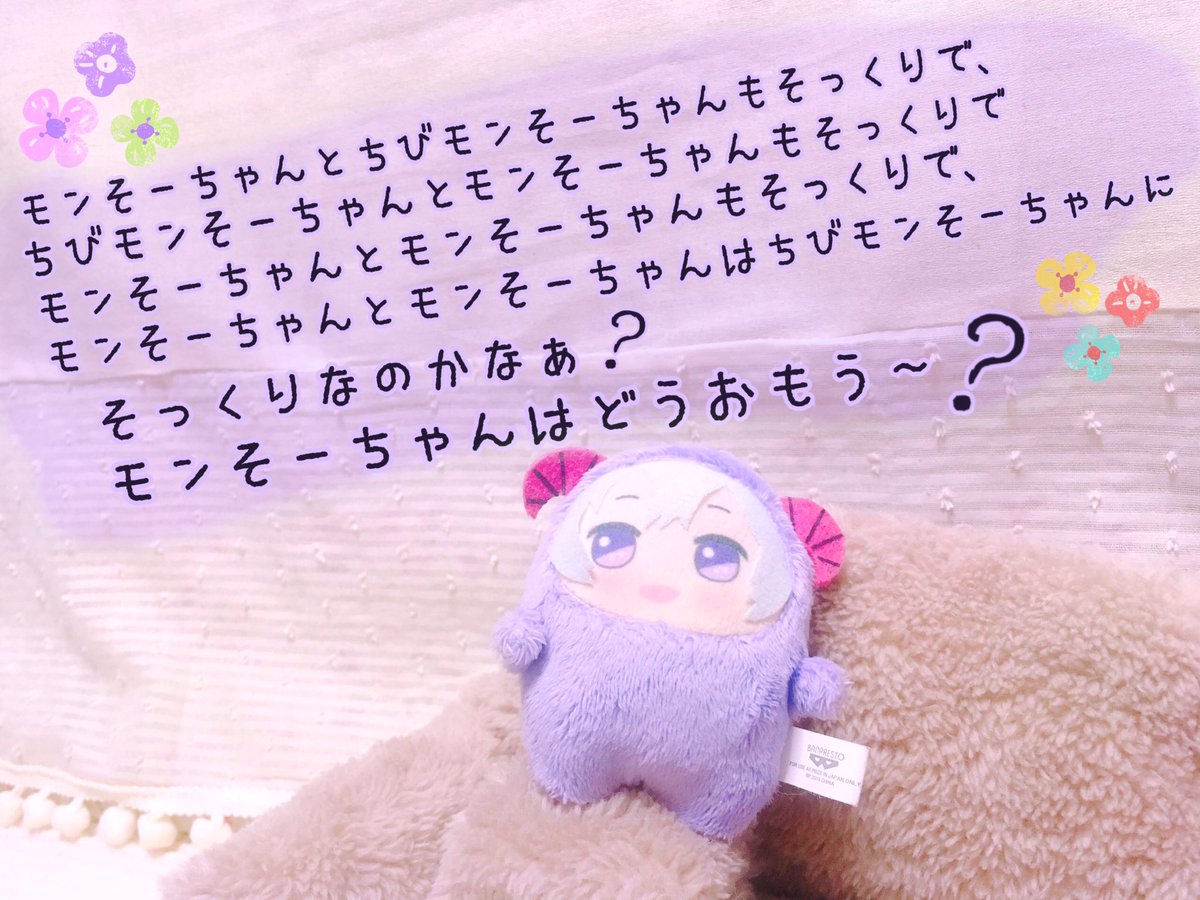 モンそーちゃんとちびモンそーちゃんもそっくりで、
ちびモンそーちゃんとモンそーちゃんもそっくりで
モンそーちゃんとモンそーちゃんもそっくりで、
モンそーちゃんとモンそーちゃんはちびモンそーちゃんに
そっくりなのかなぁ?
モンそーちゃんはどうおもう~?
BANPRESTO
FOR USE AS PRIZE IN JAPAN ONLY